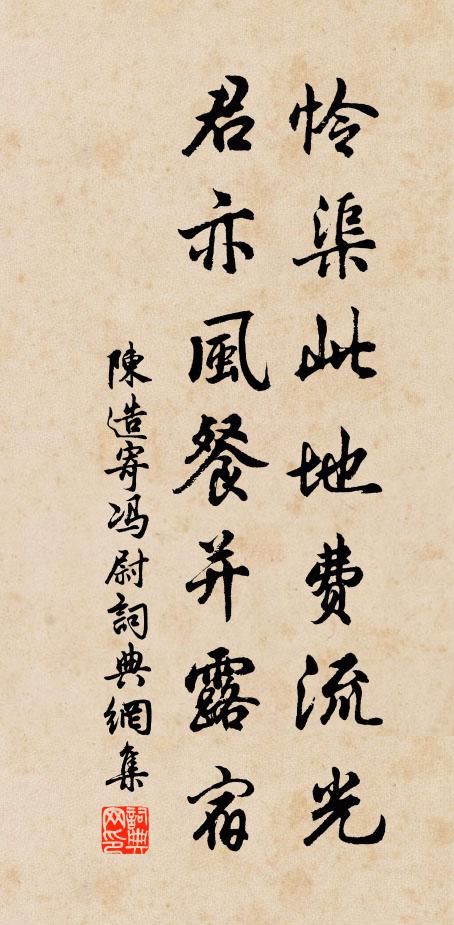 怜渠此地費流光
君亦風餐并露宿
陳造寄馮尉詞典網集
詞典網印